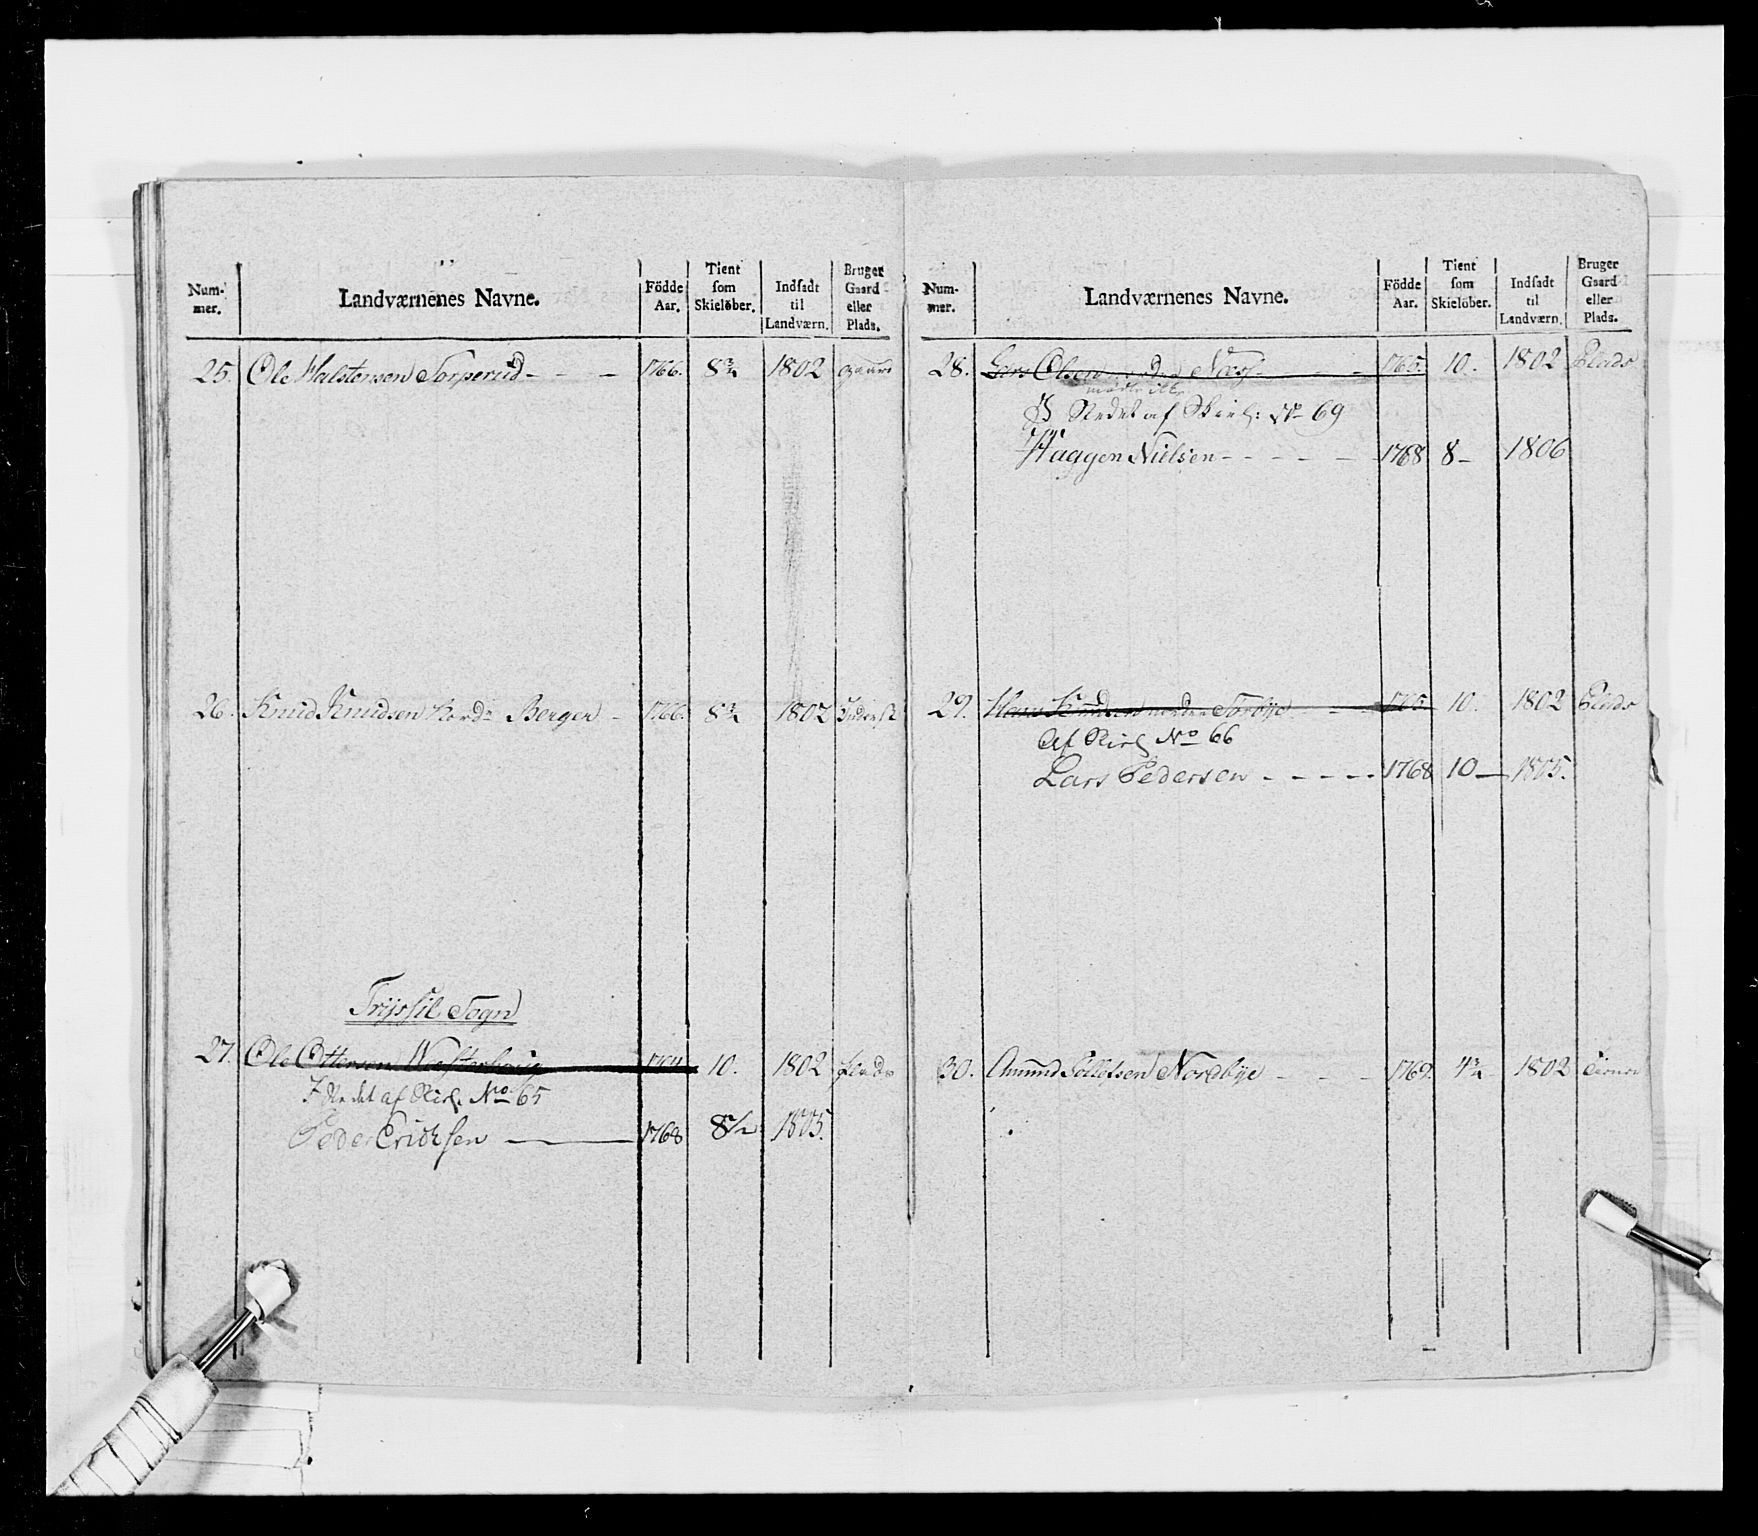 Num-
mer.
Landværnenes Navne.
Födde
Aar.
Tient
som
Skielöber.
Indsadt
til
Landværn.
Bruger
Gaard
eller
Plads.
25. Ole Halstensen Torperud - - - 1766. 8¾ 1802 gaard
26. Knud Knudsen Bergen - 1766. 8¾ 1802
Trijssil Sogn
27. Ole Ottersen 10. 1802 Plads
No 65
Peder Ericksen 1768 8½ 1805.
Num-
mer.
Landværnenes Navne.
Födde
Aar.
Tient
som
Skielöber.
Indsadt
til
Landværn.
Bruger
Gaard
eller
Plads.
28. Lars Olsen Næss 1765. 10. 1802 Plads
af No 69
Haagen Nielsen - - - - - 1768 8 - 1806
29. 1765. 10. 1802 Plads
Af No 66
Lars Pedersen - - - - - 1768 10 - 1805.
30. Amund Nordbye - - - 1762. 4¾ 1802